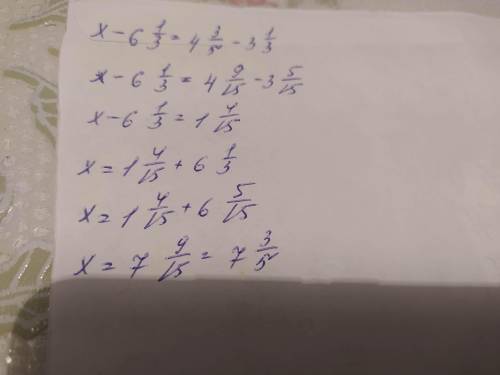 x - 6 1/3 = 4 3/5 - 3 1/3
x - 6 1/3 = 4 9/15 - 3 5/15
x - 6 1/3 = 1 4/15
x = 1 4/15 + 6 1/3
x = 1 4/15 + 6 5/15
x = 7 9/15 = 7 3/5